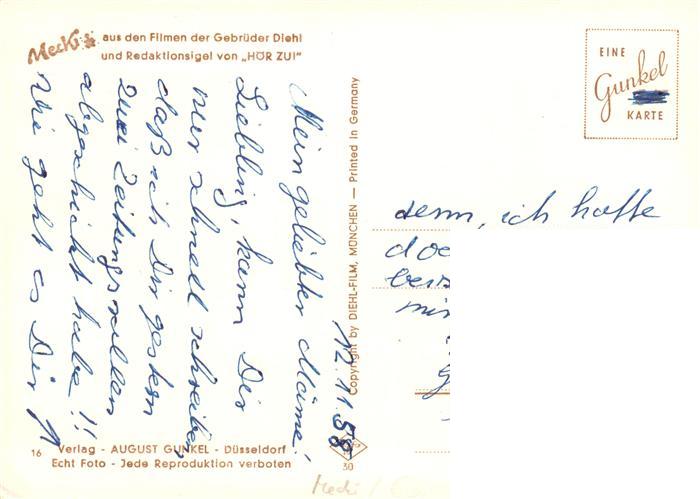 Mecki
aus den Filmen der Gebrüder Diehl
und Redaktionsigel von „HÖR ZU!"
EINE
Gunkel
KARTE
12. 11. 58
Mein geliebter Meine!
Liebling, kann Dir
nur schnell schreiben,
daß ich Dir gestern
zwei Zeitungsrollen
abgeschickt habe!!
Wie geht es Dir
denn, ich hoffe
doc
Copyright by DIEHL-FILM, MÜNCHEN — Printed in Germany
16
Verlag - AUGUST GUNKEL - Düsseldorf
Echt Foto - Jede Reproduktion verboten
30
Mecki